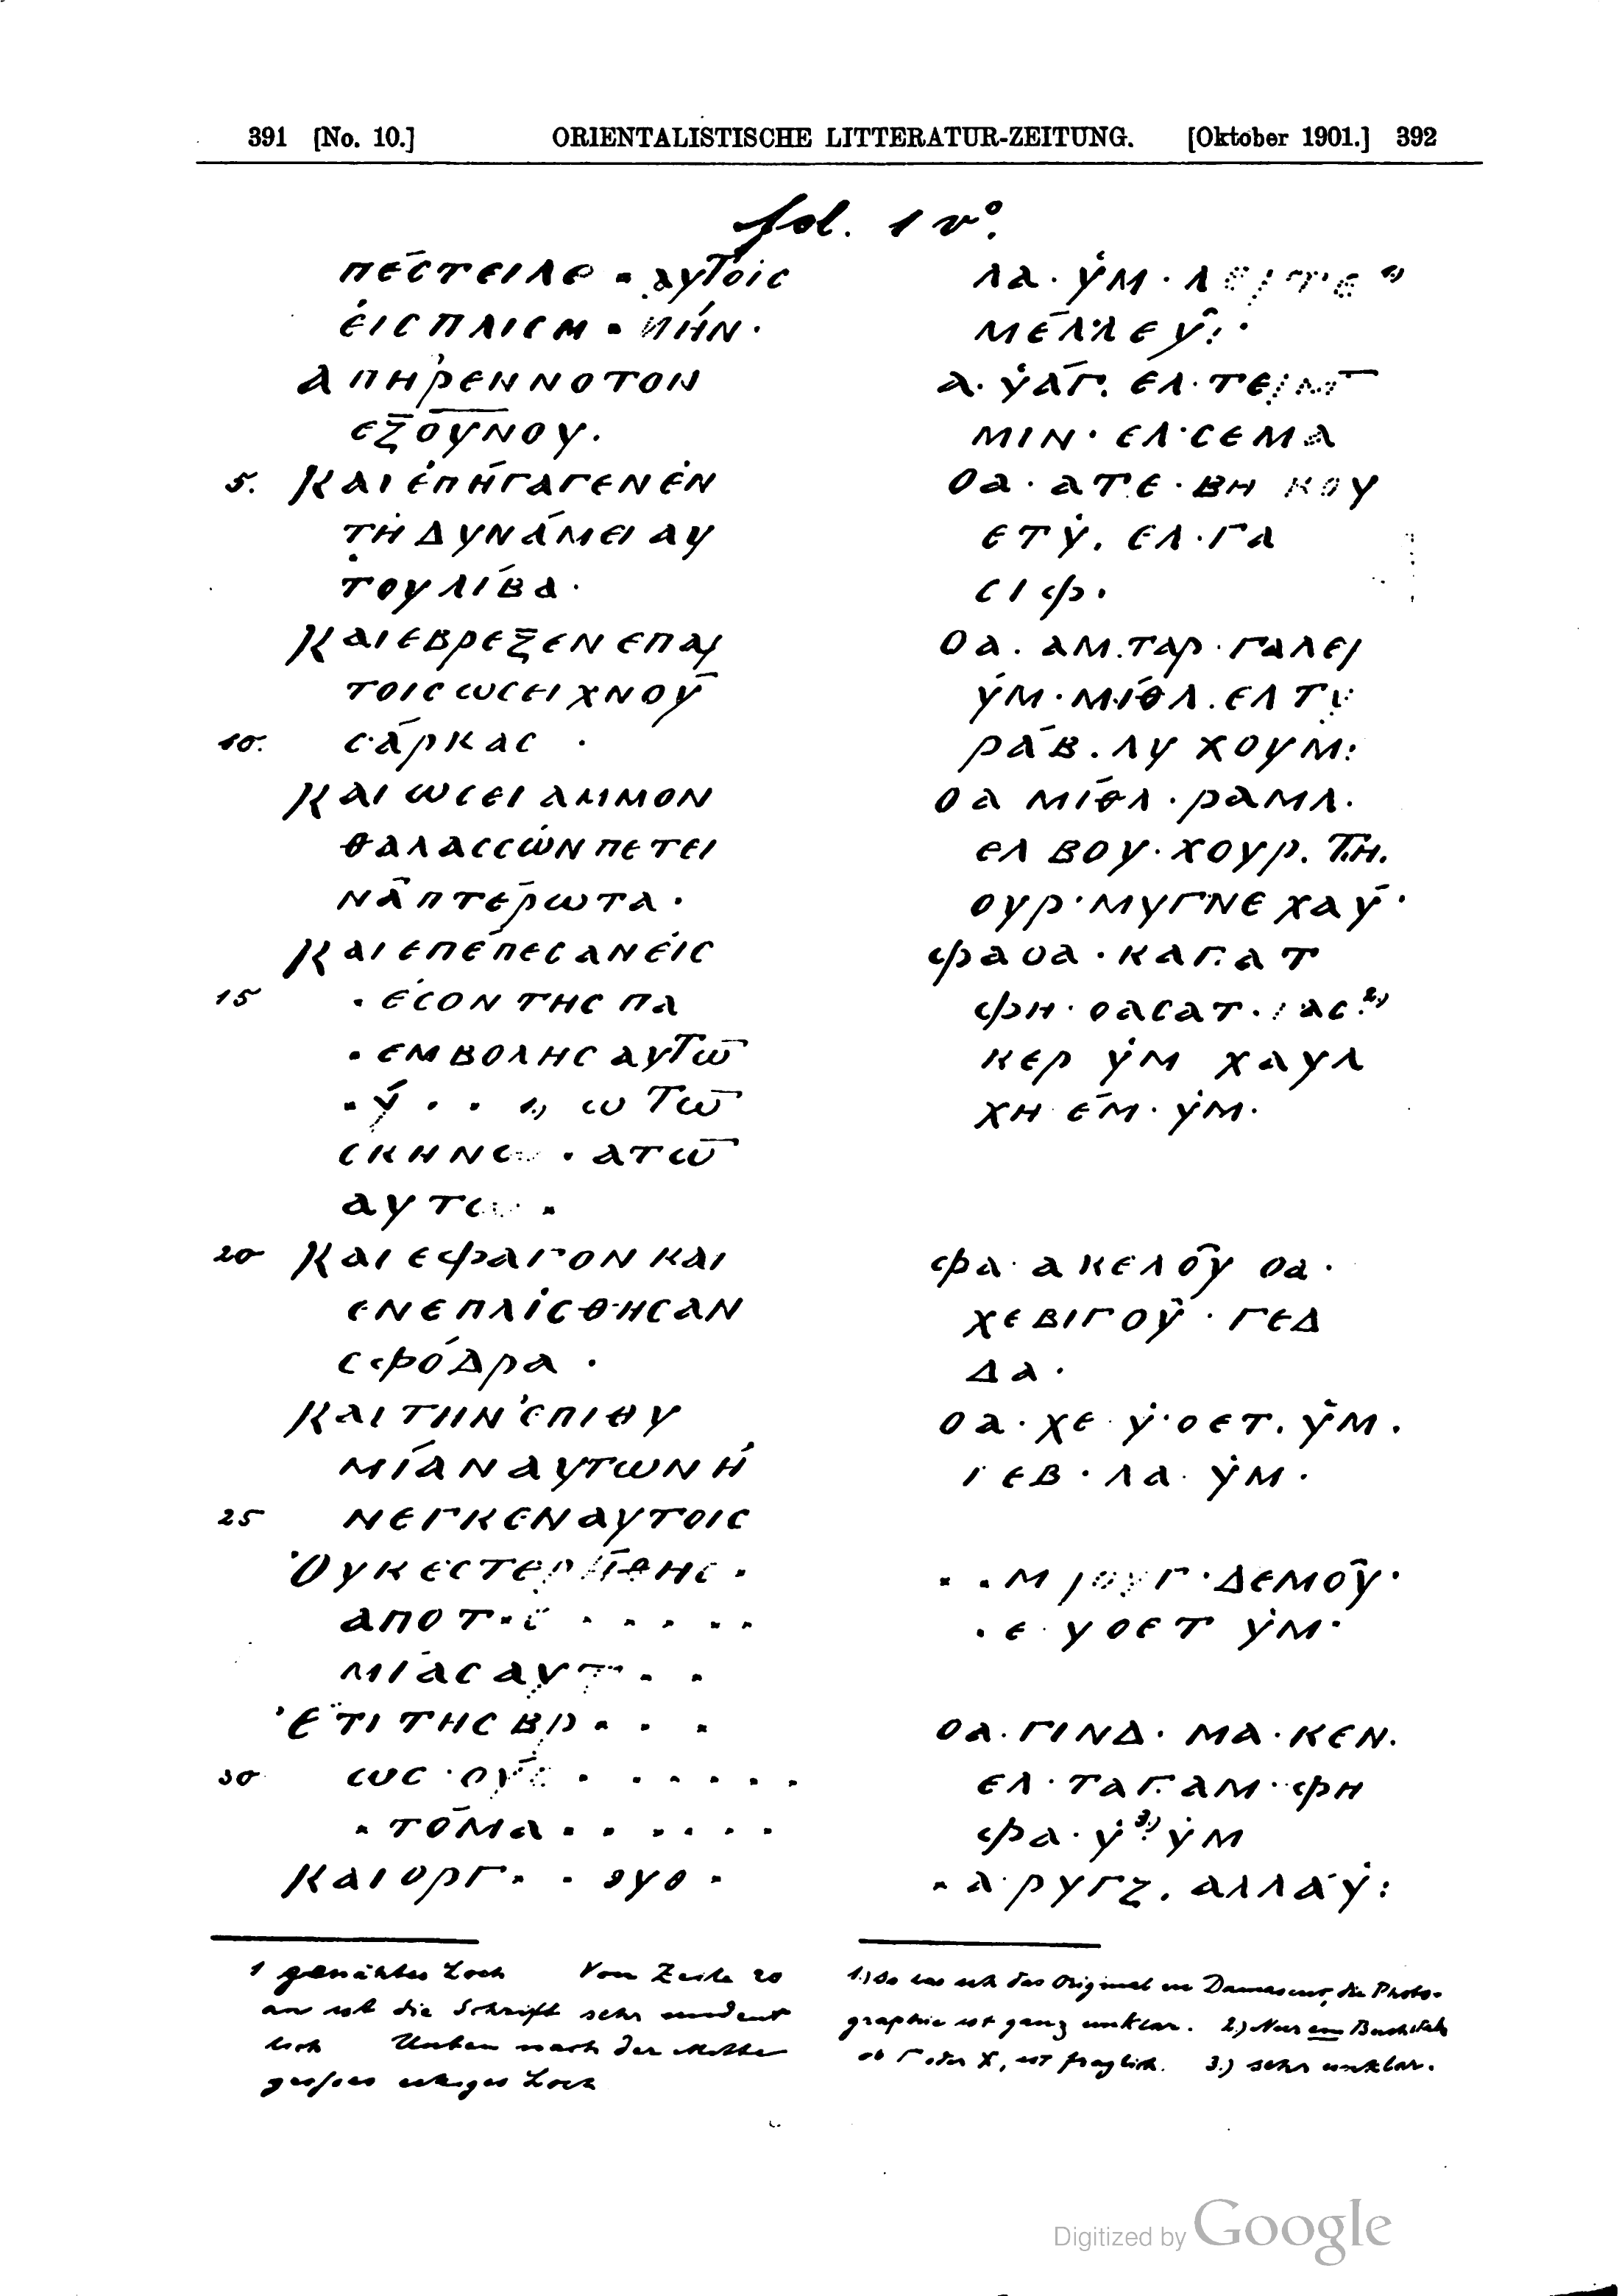 391 [No. 10.] ORIENTALISTISCHE LITTERATUR-ZEITUNG. [Oktober 1901.] 392
fol. 1 v°.
ΠΈϹΤΕΙΛΕ · ΑΥΤΟΙϹ
ἐΙϹΠΛΙϹΜ · ΝΉΝ·
ΑΠΗΡΕΝΝΟΤΟΝ
ΕΞΟΥΝΟΥ.
5. ΚΑΙἐΠΉΓΑΓΕΝἐΝ
ΤΗΔΥΝΆΜΕΙΑΥ
ΤΟΥΛΊΒΑ·
ΚΑΙΕΒΡΕΞΕΝΕΠΑΥ
ΤΟΙϹΩϹΕΙΧΝΟῩ
10. ϹΆΡΚΑϹ ·
ΚΑΙΩϹΕΙΑΜΜΟΝ
ΘΑΛΑϹϹΏΝΠΕΤΕΙ
ΝᾺΠΤΕΡΩΤΑ·
ΚΑΙΕΠΈΠΕϹΑΝΕΊϹ
15 · ΈϹΟΝΤΗϹΠΑ
· ΕΜΒΟΛΗϹΑΥΤΩ̄
· Ύ · · 1.) ΩΤΩ̄
ϹΚΗΝΩ · ΑΤΩ̄
ΑΥΤΩ ·
20 ΚΑΙΕΦΑΓΟΝΚΑΙ
ΕΝΕΠΛΊϹΘΗϹΑΝ
ϹΦΌΔΡΑ ·
ΚΑΙΤΗΝἘΠΙΘΥ
ΜΊΑΝΑΥΤΩΝΉ
25 ΝΕΓΚΕΝΑΥΤΟΙϹ
ὈΥΚΕϹΤΕΡΉΘΗϹ ·
ΑΠΟΤ · · · · · ·
ΜΙΆϹΑΥΤ · ·
ἘΤΙΤΗϹΒΡ · · ·
30 ΩϹ · ΟΥϹ · · · · · ·
· ΤΌΜΑ · · · · · ·
ΚΑΙΟΡΓ · · ΘΥΟ ·
ΛΑ · Υ̇Μ · ΛΕΙΤΕ 1.)
ΜΈΛ·ΛΕΥ̂: ·
Α · Υ̇ΆΓ. ΕΛ·ΤΕΙΜ
ΜΙΝ· ΕΛ·ϹΕΜΑ
ΟΑ · ΑΤΕ · ΒΗ ΚΟΥ
ΕΤΥ̇. ΕΛ·ΓΑ
ϹΙΦ.
ΟΑ . ΑΜ.ΤΑΡ · ΓΑΛΕΙ
Υ̇Μ · ΜΊΘΛ . ΕΛ ΤΥ
ΡΆΒ . ΛΥ ΧΟΥΜ:
ΟΑ ΜΊΘΛ · ΡΑΜΛ.
ΕΛ ΒΟΥ · ΧΟΥΡ. Τ.Η.
ΟΥΡ·ΜΥΓΝΕ ΧΑΎ ·
ΦΑΟΑ · ΚΑΓ.ΑΤ
ΦΗ · ΟΑϹΑΤ · ΑϹ 2.)
ΚΕΡ Υ̇Μ ΧΑΥΛ
ΧΗ ΈΜ · Υ̇Μ·
ΦΑ · ΑΚΕΛΟΥ̂ ΟΑ ·
ΧΕΒΙΓΟΥ̂ · ΓΕΔ
ΔΑ ·
ΟΑ · ΧΕ Υ̇·ΟΕΤ. Υ̇Μ.
ΓΕΒ · ΛΑ · Υ̇Μ ·
· · Μ ΓΟΥΓ · ΔΕΜΟΥ̂·
· Ε ΥΟΕΤ Υ̇Μ·
ΟΑ · ΓΙΝΔ· ΜΑ·ΚΕΝ.
ΕΛ· ΤΑΓ.ΑΜ · ΦΗ
ΦΑ · Υ̇ 3.) Υ̇Μ
· Α · ΡΥΓΖ. ΑΛΛΑΎ:
1 genähtes Loch Von Zeile 20
an ist die Schrift sehr undeut
lich Unten nach der Mitte
grosses eckiges Loch
1.) So las ich das Original in Damascus, die Photo-
graphie ist ganz unklar. 2.) Nur ein Buchstabe
ob Γ oder X, ist fraglich. 3.) sehr unklar.
Digitized by Google